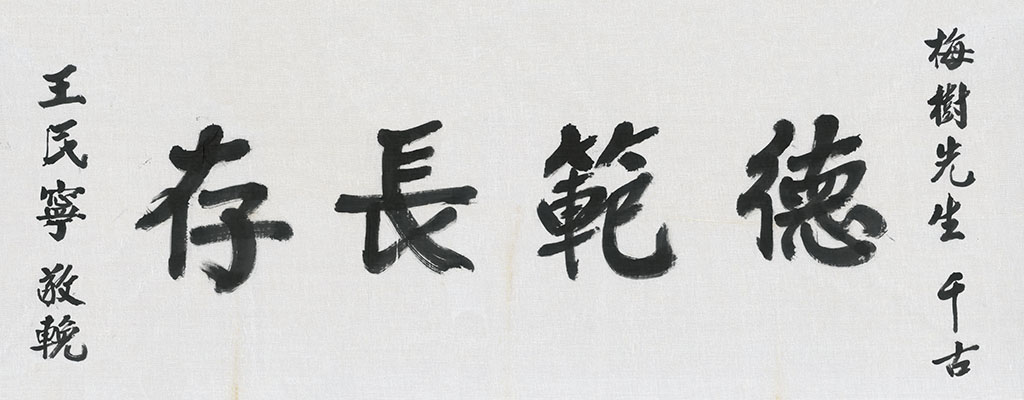 梅樹先生 千古
德範長存
王民寧 敬輓